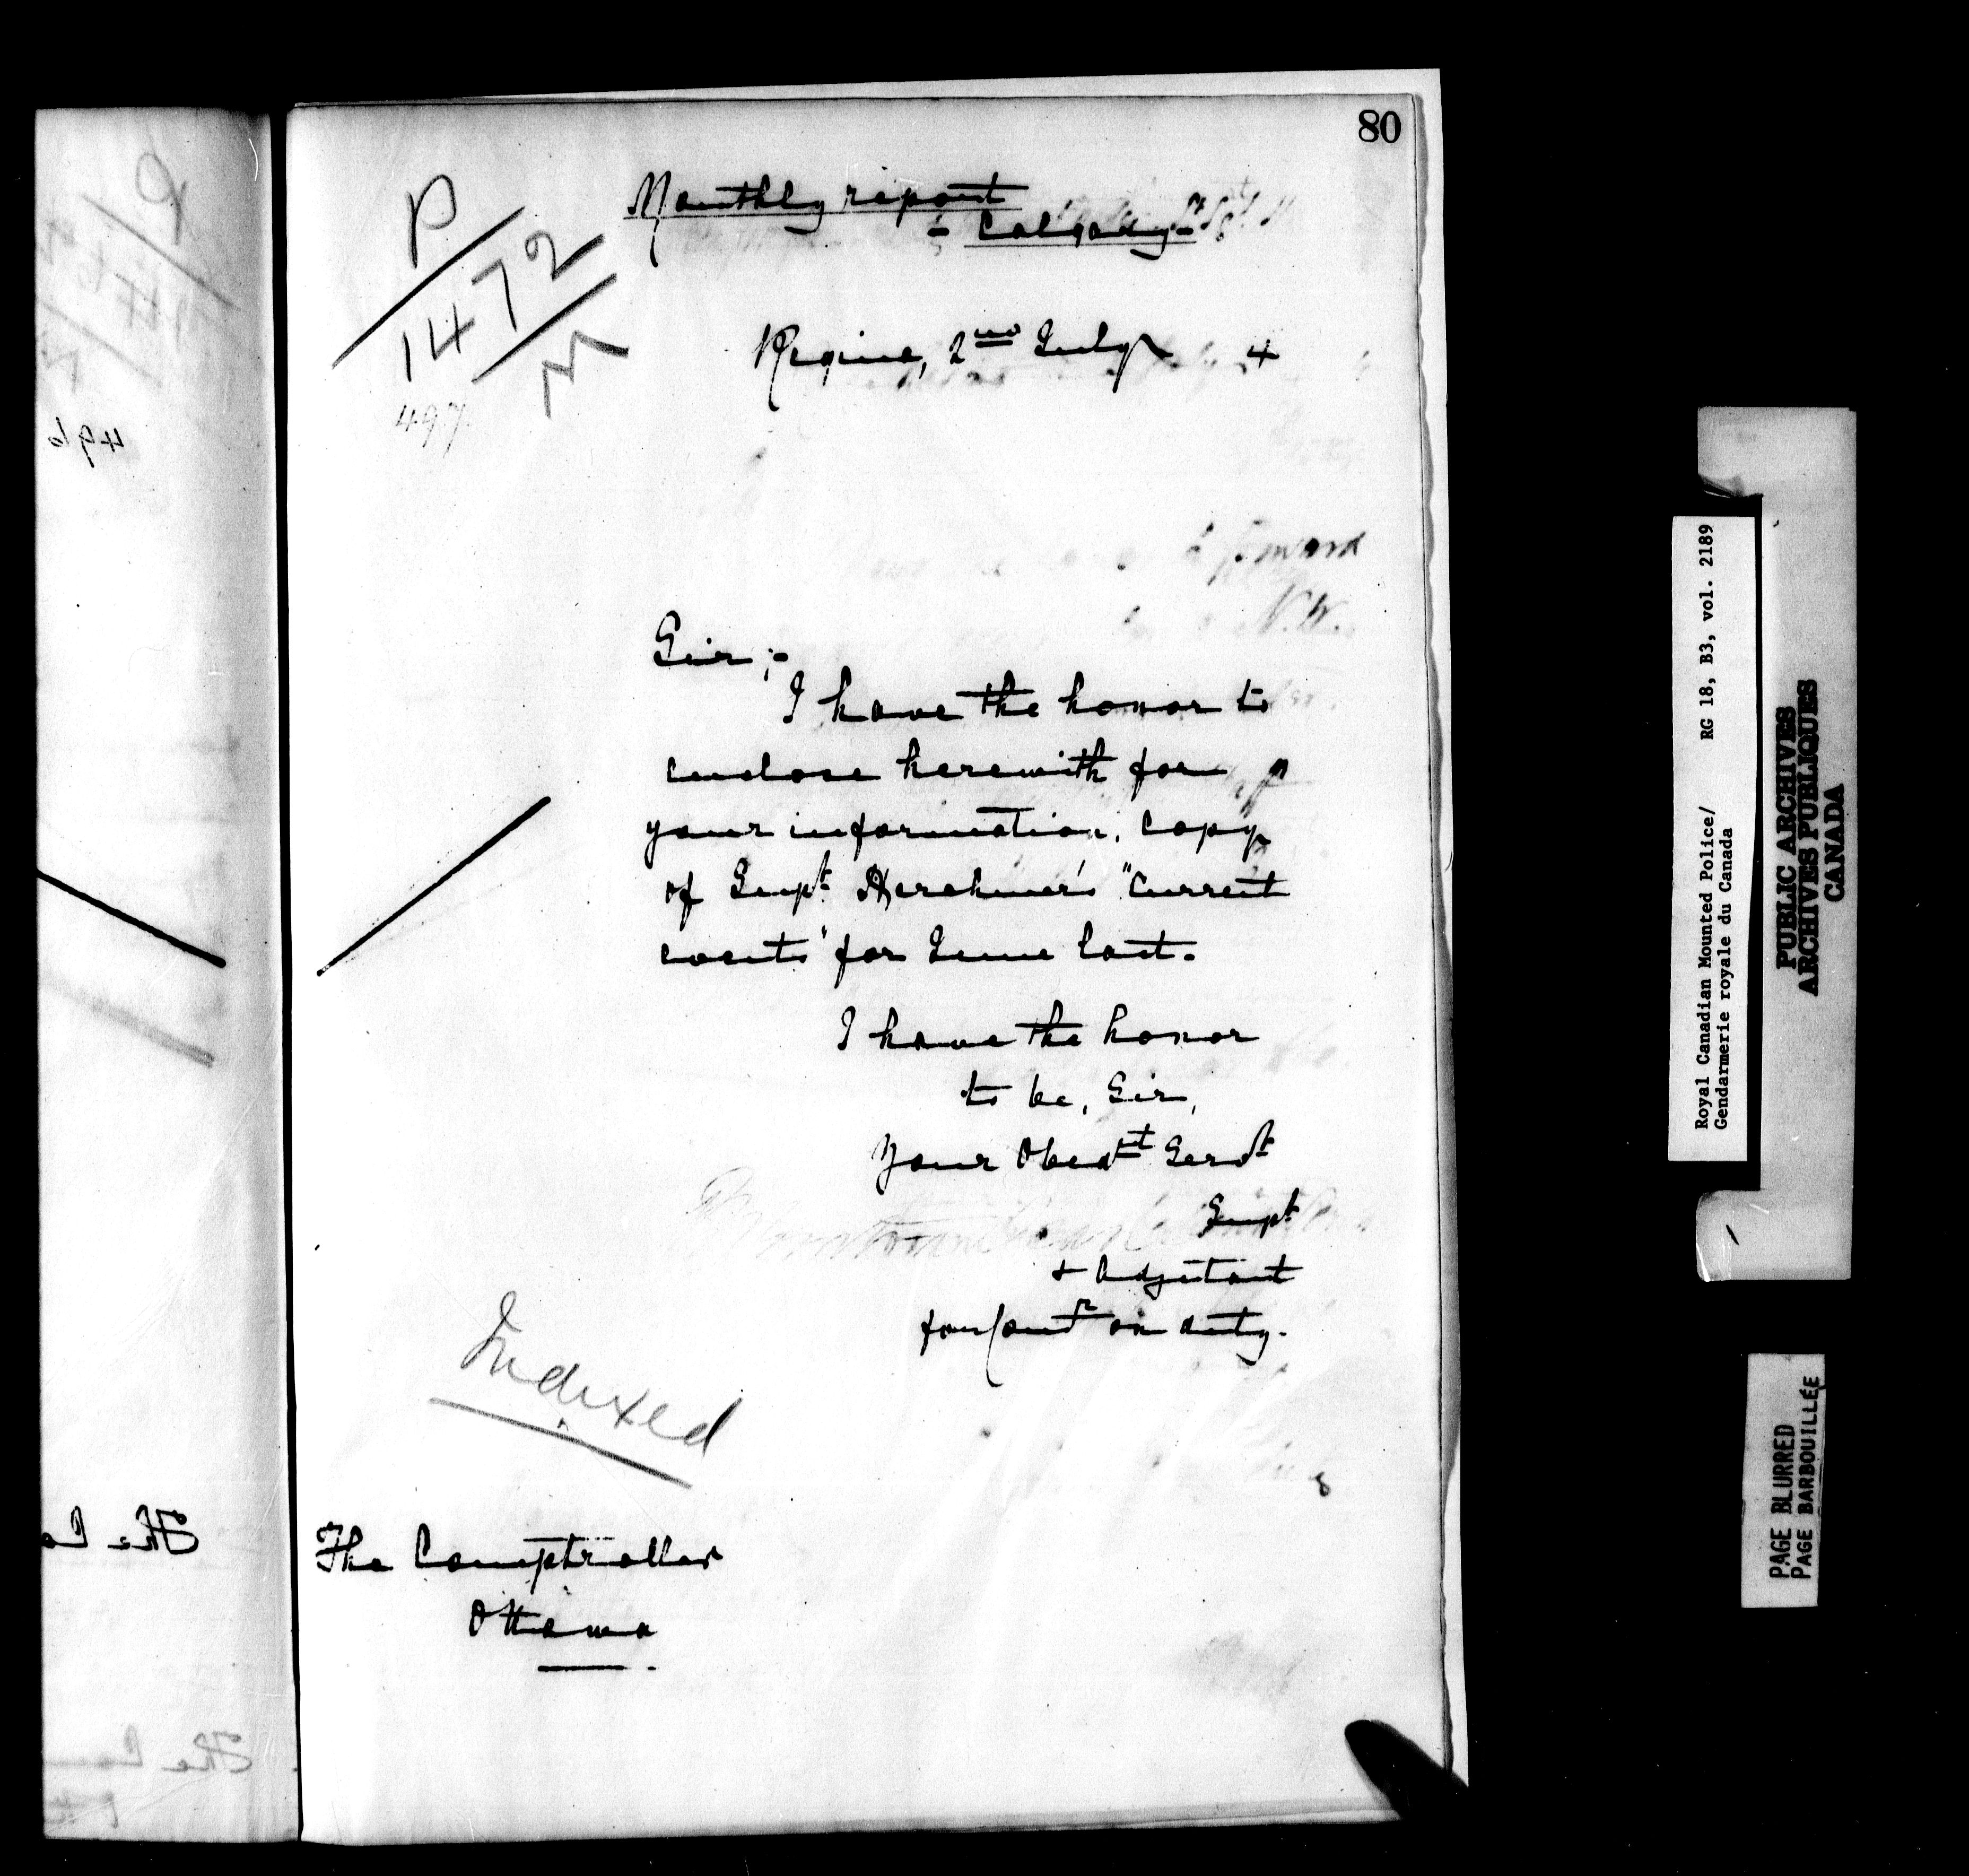 80
P
1472
497
Monthly report
- Calgary -
Regina, 2nd July 4
Sir ;-
I have the honor to
enclose herewith for
your information, copy
of Supt Herchmer's "Current
events" for June last.
I have the honor
to be, Sir,
Your Obedt Servt
Supt
+ Adjutant
for Comr on duty.
Indexed
The Comptroller
Ottawa
Royal Canadian Mounted Police/ RG 18, B3, vol. 2189
Gendarmerie royale du Canada
PUBLIC ARCHIVES
ARCHIVES PUBLIQUES
CANADA
PAGE BLURRED
PAGE BARBOUILLÉE